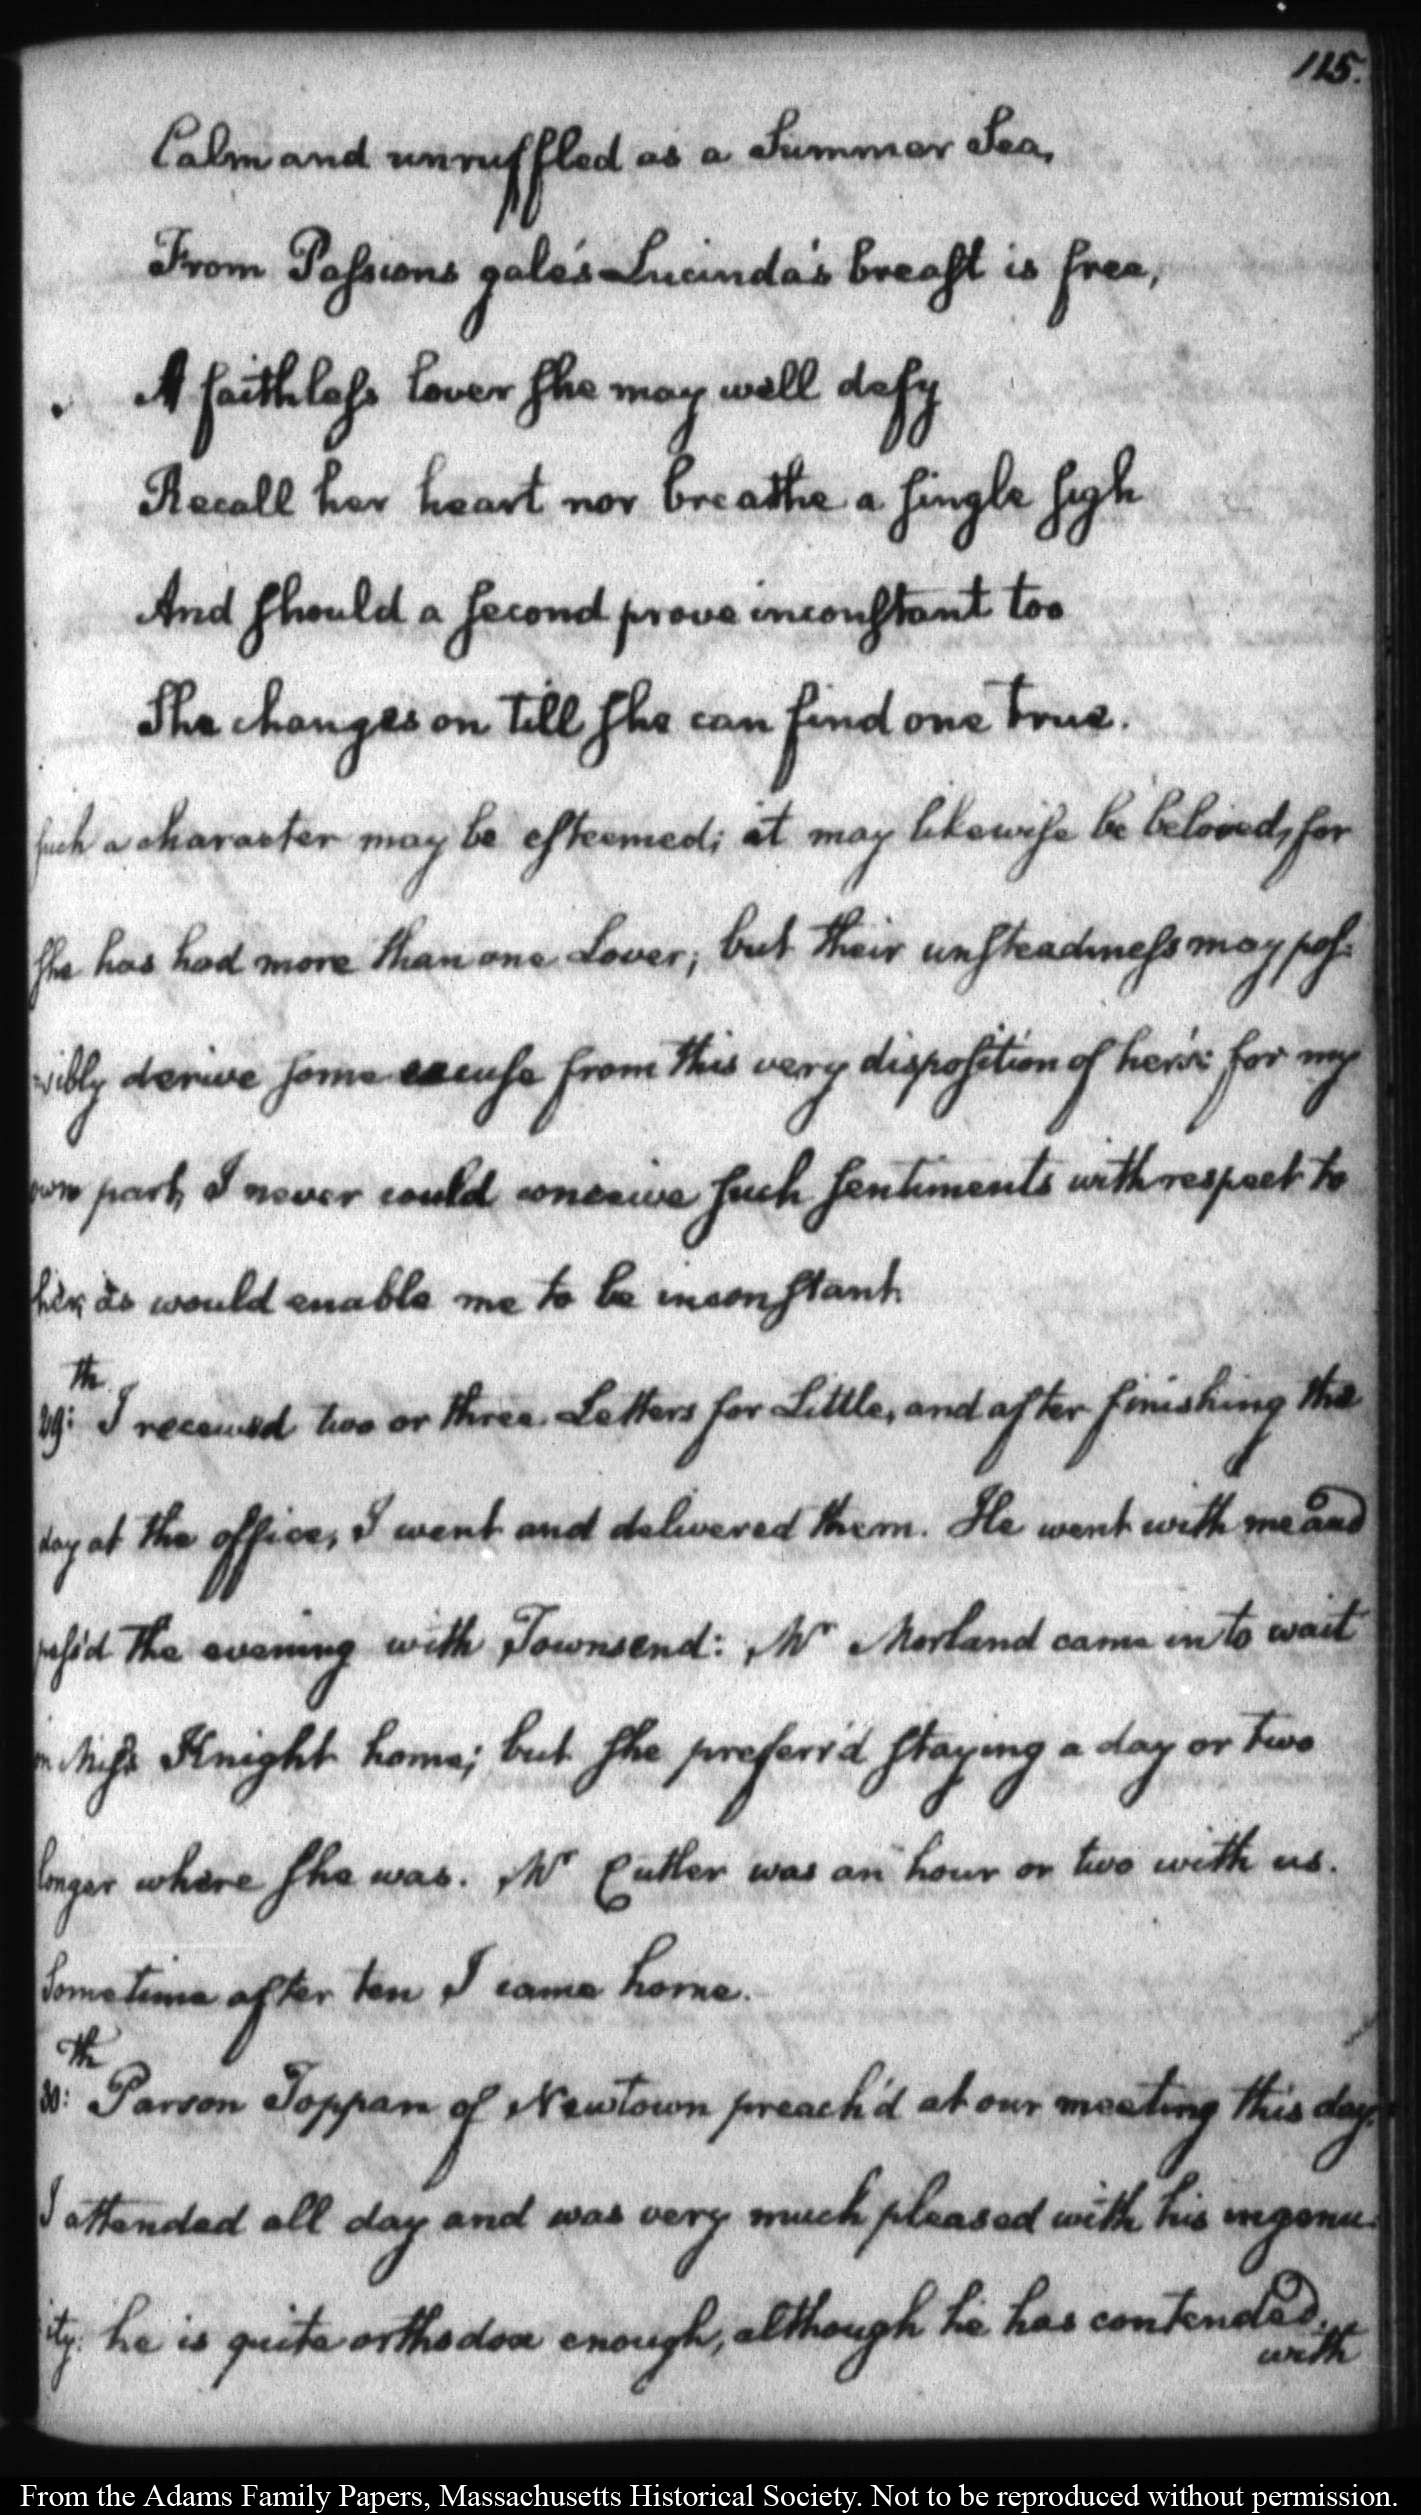 115.
Calm and unruffled as a Summer Sea,
From Passions gale's Lucinda's breast is free,
A faithless lover she may well defy
Recall her heart nor breathe a single sigh
And should a second prove inconstant too
She changes on till she can find one true.
such a character may be esteemed; it may likewise be beloved, for
she has had more than one Lover; but their unsteadiness may pos-
-sibly derive some excuse from this very disposition of her's: for my
own part, I never could conceive such sentiments with respect to
her, as would enable me to be inconstant.
29:th I received two or three Letters for Little, and after finishing the
day at the office, I went and delivered them. He went with me and
pass'd the evening with Townsend: Mr Morland came in to wait
on Miss Knight home; but she preferr'd staying a day or two
longer where she was. Mr Cutler was an hour or two with us.
Sometime after ten I came home.
30:th Parson Toppan of Newtown preach'd at our meeting this day.
I attended all day and was very much pleased with his ingenu-
-ity: he is quite orthodox enough, although he has contended
with
From the Adams Family Papers, Massachusetts Historical Society. Not to be reproduced without permission.